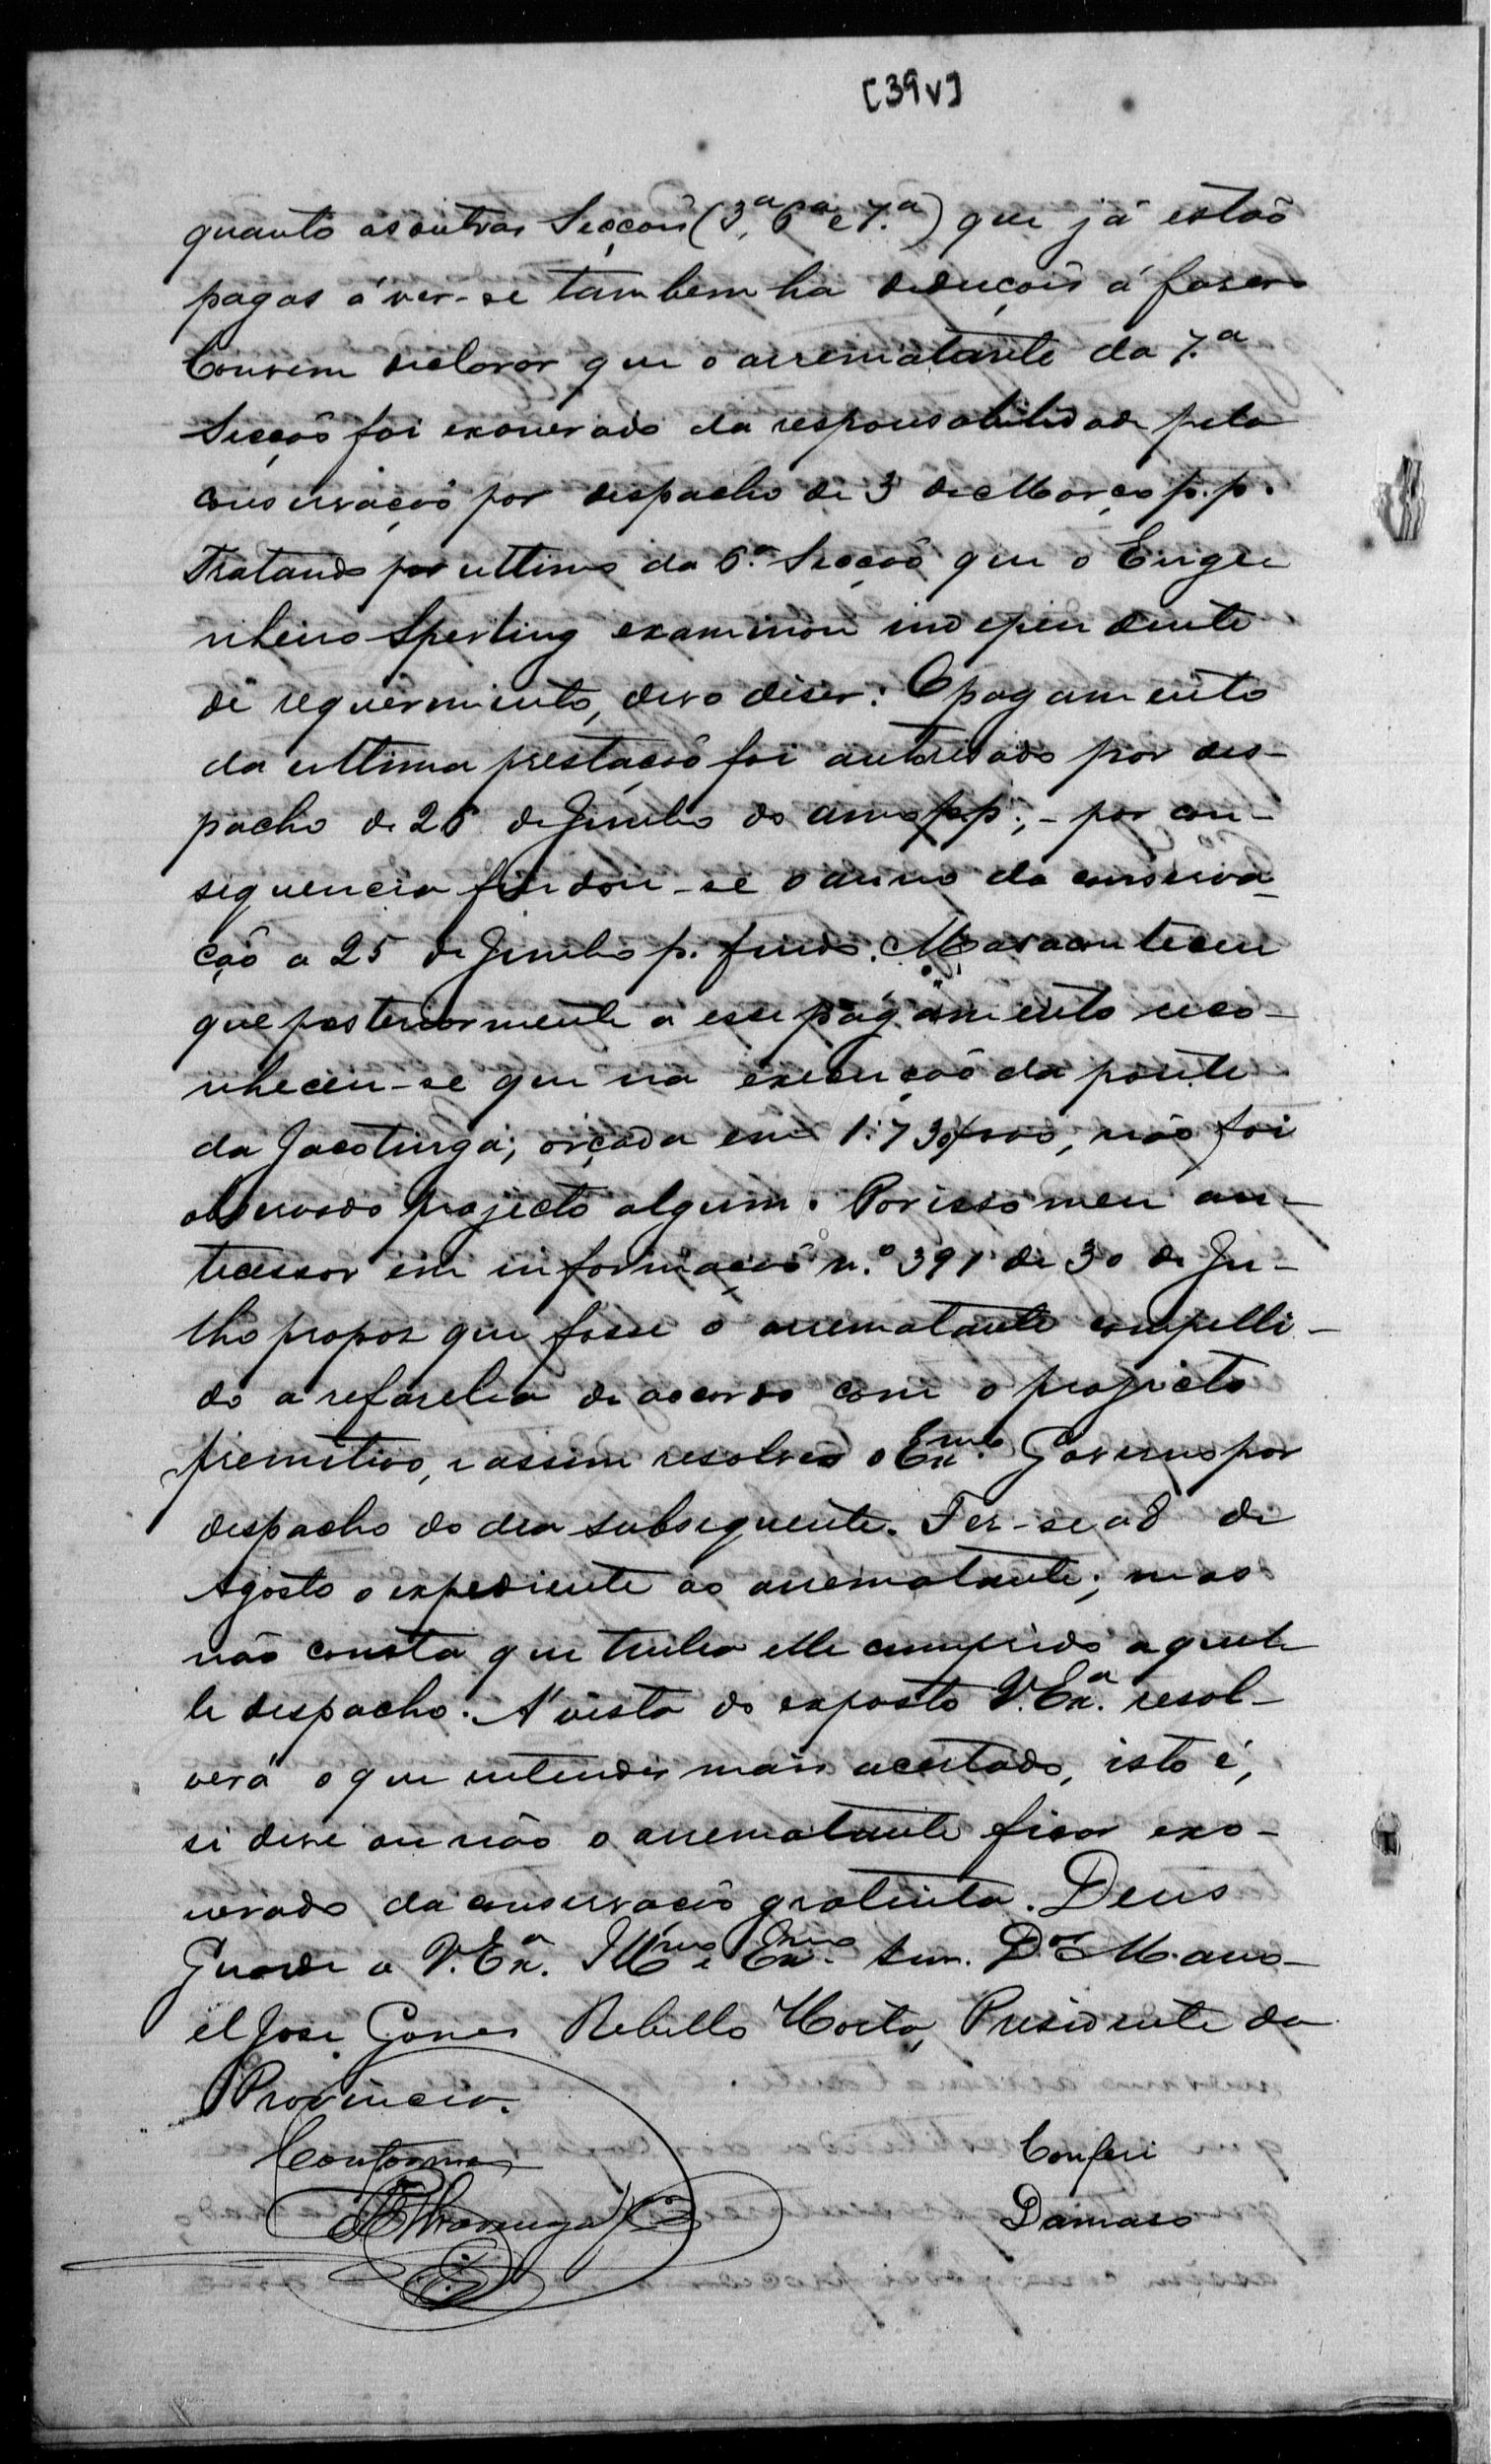 [39v]
quanto as outras Secçoes (3.ª, 6.ª e 7.ª) que já estaõ
pagas á ver-se tambem ha deducçois á faser.
Convem declarar que o arrematante da 7.ª
Secçaõ foi exonerado da responsabilidade pela
conservaçaõ por despacho de 3 de Março p.p.
Tratando por ultimo da 6.ª Secçaõ que o Enge
nheiro Sperling examinou independente
de requerimento, devo diser: O pagamento
da ultima prestaçaõ foi autorisado por des-
pacho de 25 de Junho do anno pp; - por con-
sequencia findou-se o anno da conserva-
çaõ a 25 de Junho p. findo. Mas aconteceu
que posteriormente a esse pagamento reco-
nheceu-se que na execuçaõ da ponte
da Jacotinga, orçada em 1:730$000, não foi
observado projecto algum. Por isso meu an-
tecessor em informaçaõ n.º 391 de 30 de Ju-
lho propos que fosse o arrematante compelli-
do a refasel-a de acordo com o projecto
premitivo, e assim resolveo o Exm.º Governo por
despacho do dia subsequente. Fes-se a 8 de
Agosto o expediente ao arrematante; mas
não consta que tenha elle cumprido aquel-
le despacho. A' vista do exposto V. Ex.ª resol-
verá o que entender mais acertado, isto é,
si deve ou não o arrematante ficar exo-
nerado da conservaçaõ gratuita. Deus
Guarde a V. Ex.ª Ill.mo e Ex.mo Snr. D.or Mano-
el José Gomes Rebello Horta, Presidente da
Provincia.
Conforme
Conferi
Damaso